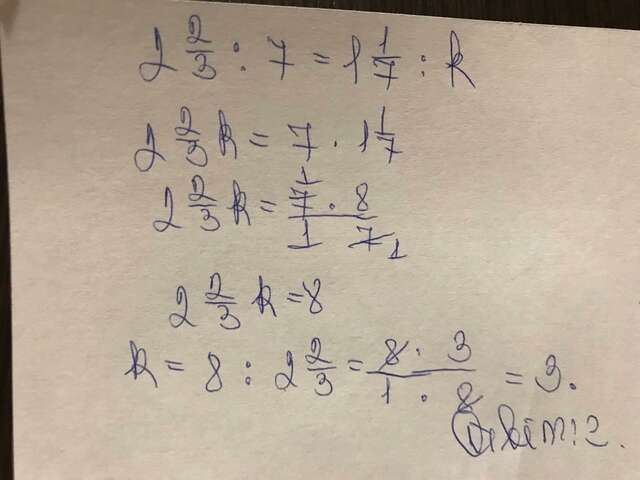 2 2/3 : 7 = 1 1/7 : k
2 2/3 k = 7 · 1 1/7
2 2/3 k = 7 · 8 / 1 7 1
2 2/3 k = 8
k = 8 : 2 2/3 = 8 · 3 / 1 · 8 = 3.